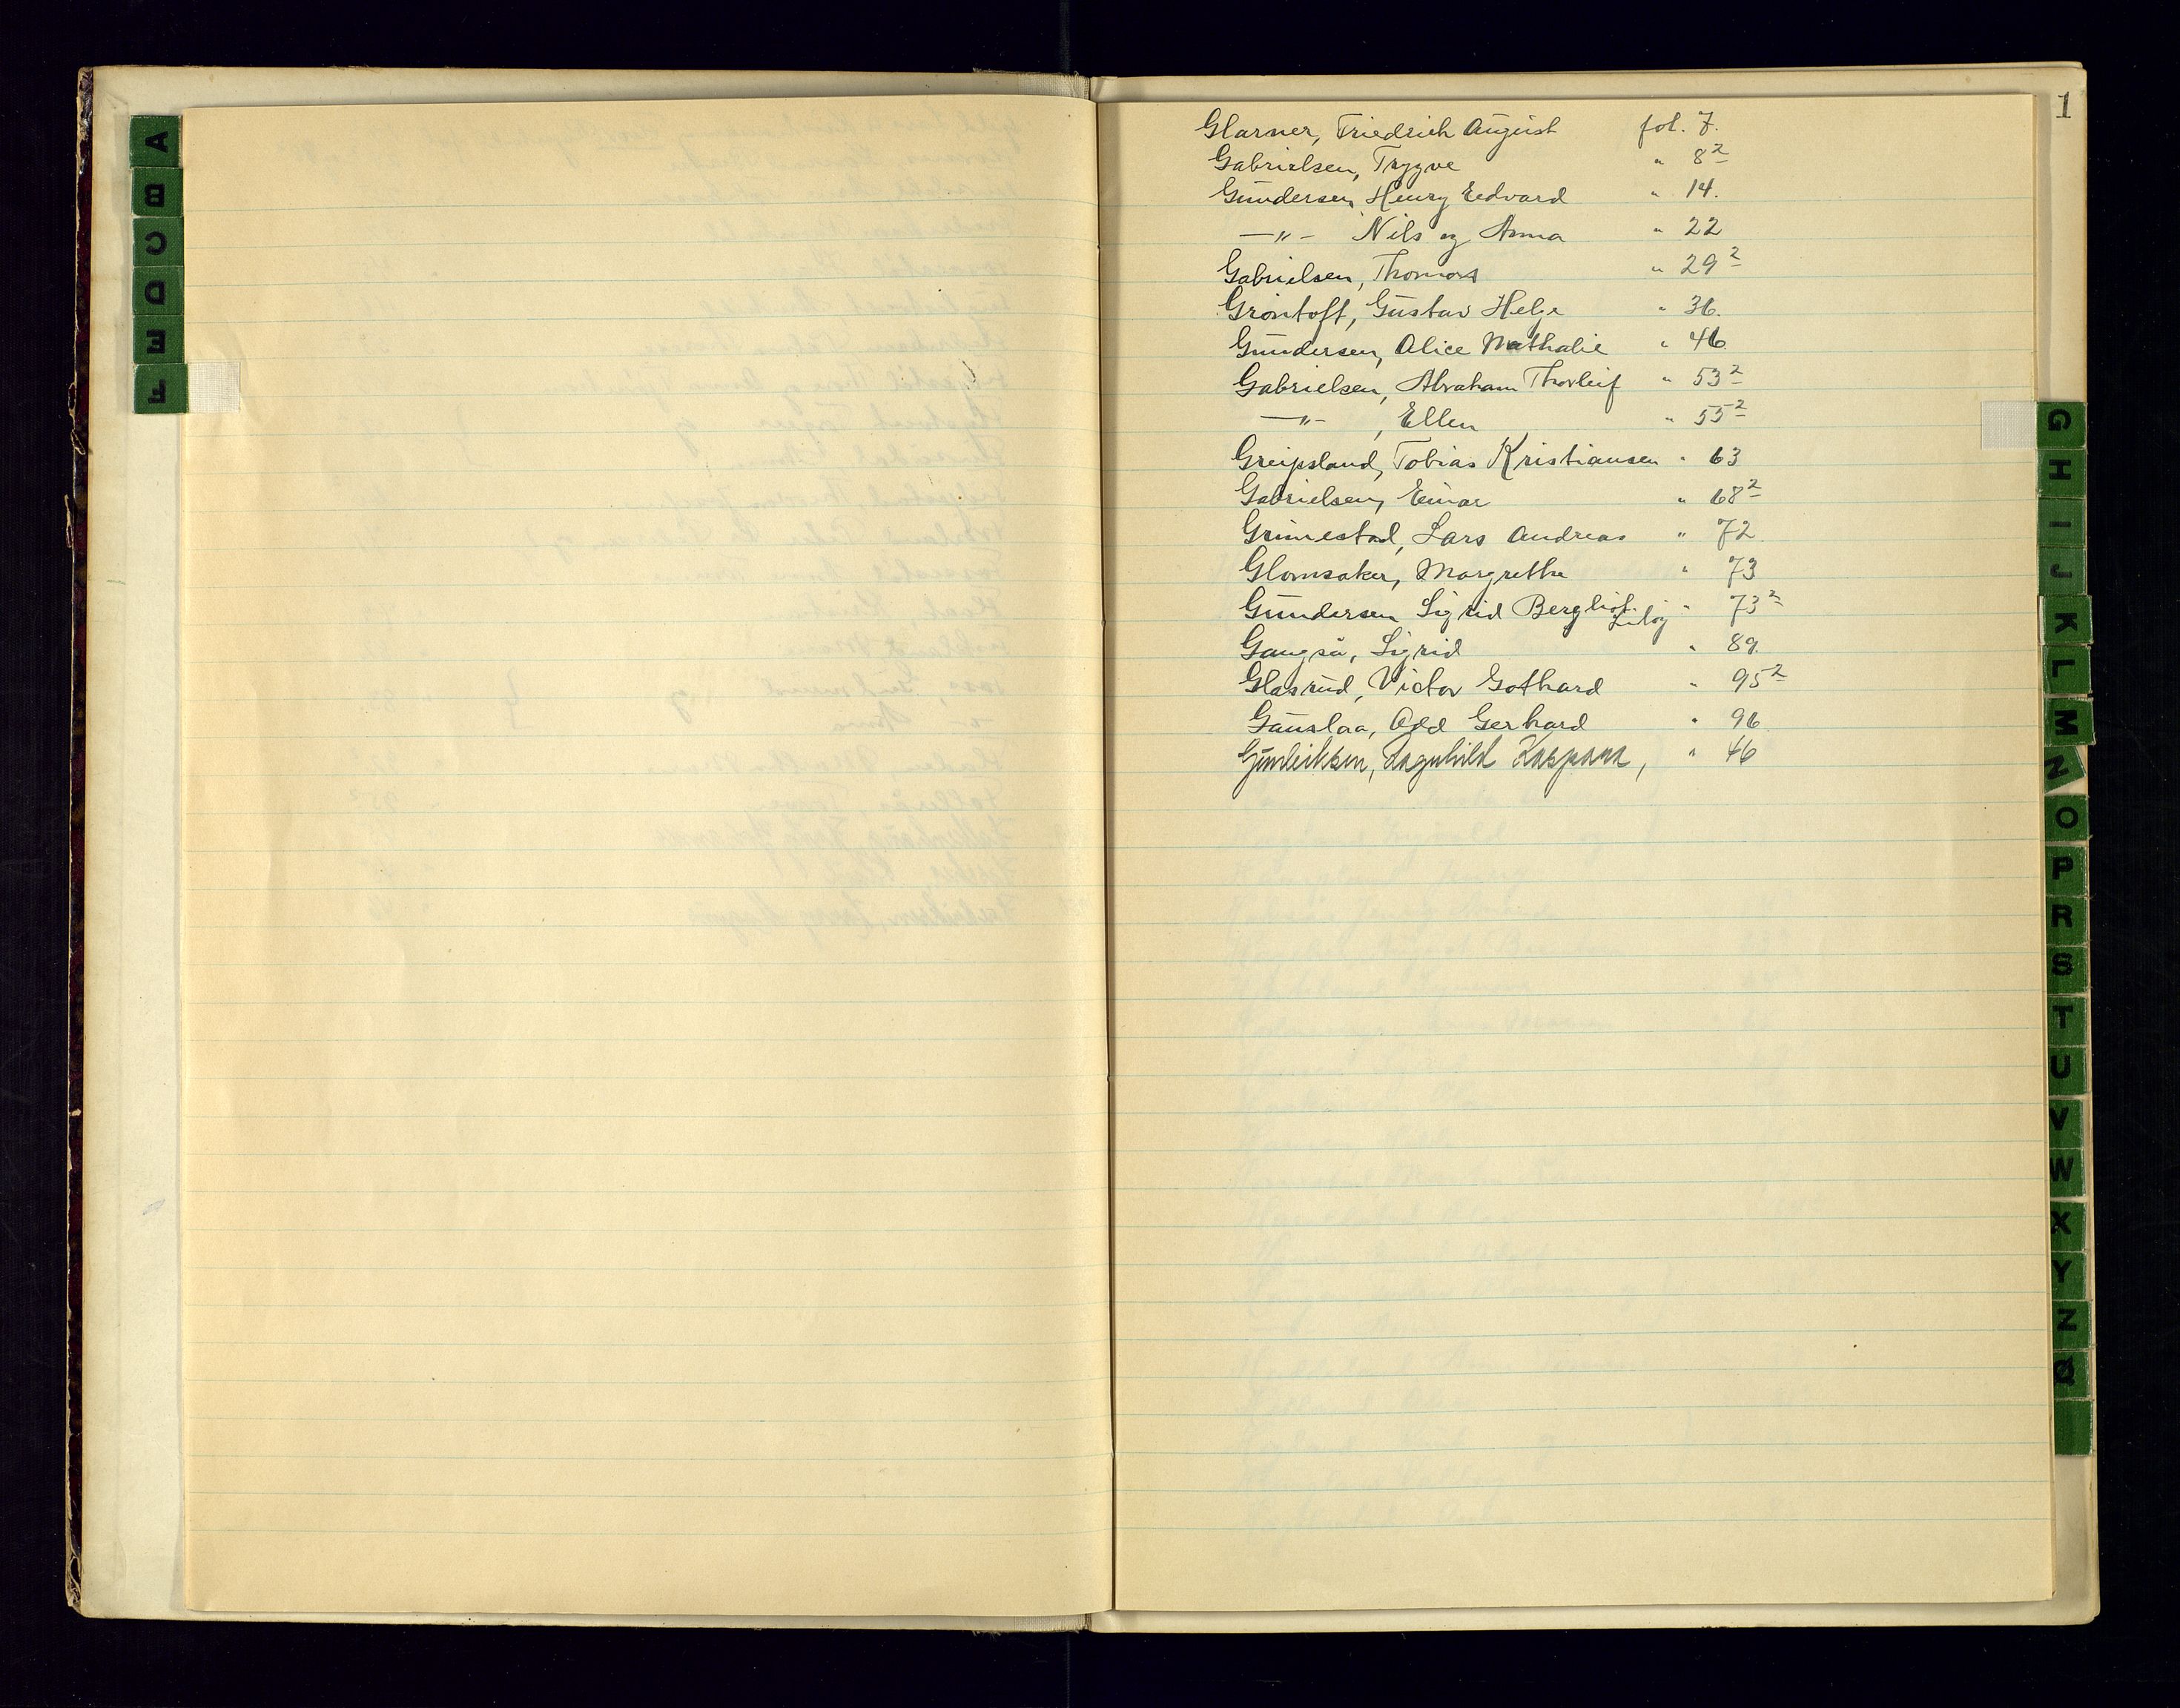 A
B
C
D
E
F
1
Glarner, Friedrich August fol. 7.
Gabrielsen, Trygve " 8²
Gundersen, Henry Edvard " 14.
—"— Nils og Anna " 22
Gabrielsen, Thomas " 29²
Gröntoft, Gustav Helge " 36.
Gundersen, Alice Nathalie " 46.
Gabrielsen, Abraham Thorleif " 53²
—"— , Ellen " 55²
Greipsland, Tobias Kristiansen " 63
Gabrielsen, Einar " 68²
Grimestad, Lars Andreas " 72.
Glomsaker, Margrethe " 73
Gundersen Sigrid Bergliot " 73²
Gangså, Sigrid " 89.
Glasrud, Victor Gothard " 95²
Gauslaa, Odd Gerhard " 96
Gunleiksen, Ragnhild Kaspara, " 46
G
H
I
J
K
L
M
N
O
P
R
S
T
U
V
W
X
Y
Z
Ø